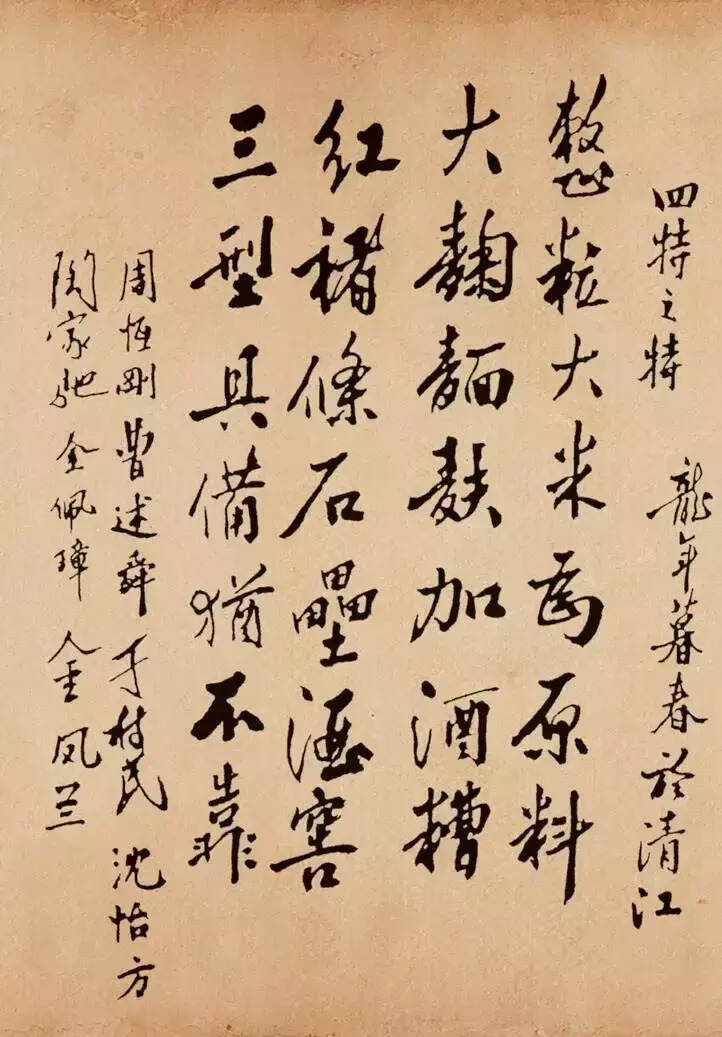 四特之特 龍年暮春於清江
整粒大米為原料
大麴麵麩加酒糟
紅褚條石壘酒窖
三型具備猶不靠
周恒剛 曹述舜 于樹民 沈怡方
陶家驰 全佩璋 金凤兰